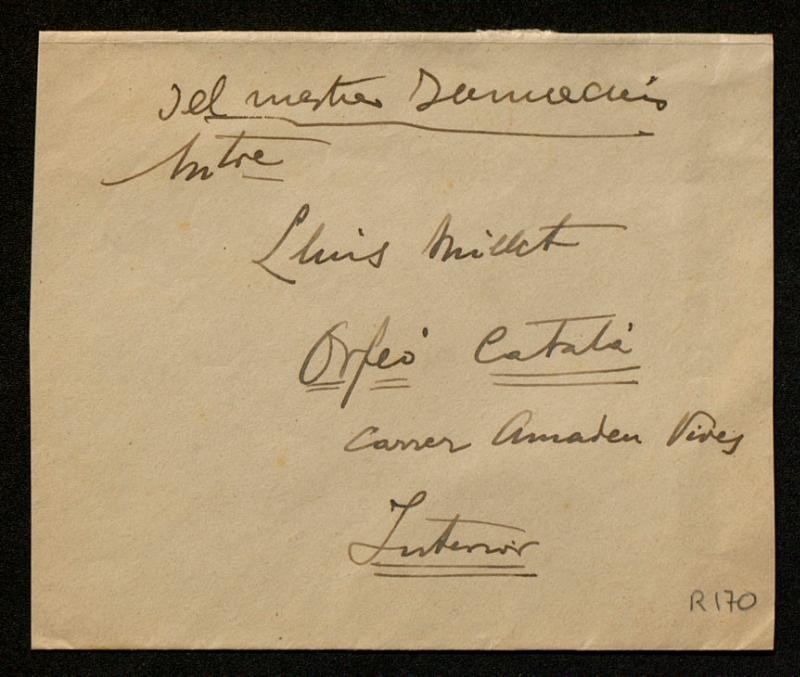 Del mestre Zamacois
Mtre
Lluis Millet
Orfeó Català
Carrer Amadeu Vives
Interior
R170